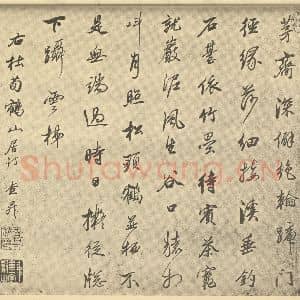 茅齋深僻絕輪蹄門
徑緣莎細接溪垂釣
石基依竹壘待賓茶竈
就巖泥風生谷口猿相
叫月照松頭鶴並栖不
是無端過時日擬從牕
下躡雲梯
右杜荀鶴山居詩 查昇
Shufawang.CN